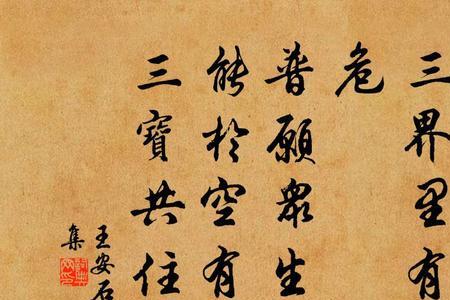 三界里有
危
普願衆生
能於空有
三寶共住
王安石
集